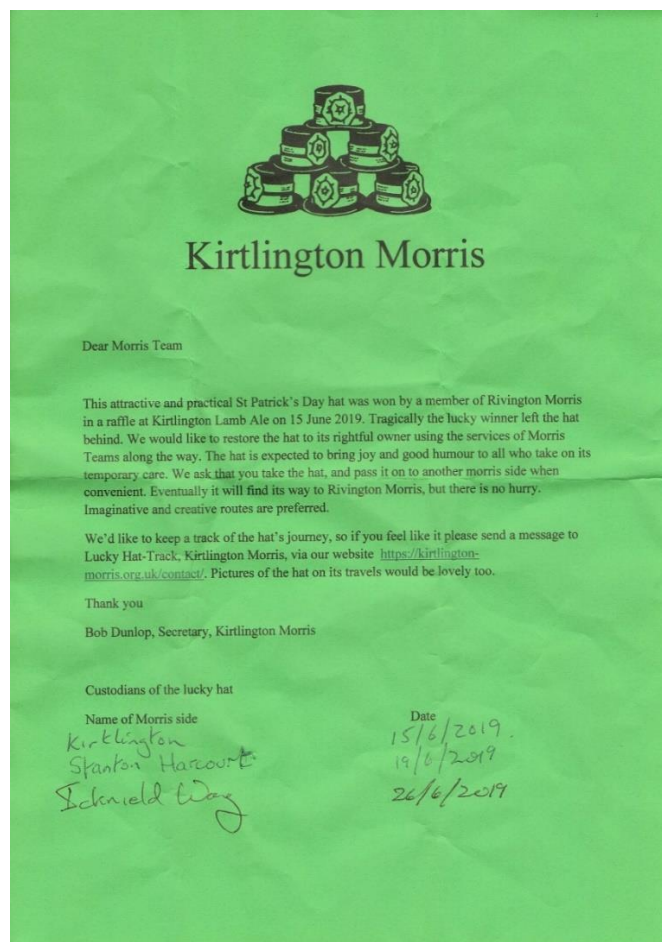 Kirtlington Morris
Dear Morris Team
This attractive and practical St Patrick's Day hat was won by a member of Rivington Morris
in a raffle at Kirtlington Lamb Ale on 15 June 2019. Tragically the lucky winner left the hat
behind. We would like to restore the hat to its rightful owner using the services of Morris
Teams along the way. The hat is expected to bring joy and good humour to all who take on its
temporary care. We ask that you take the hat, and pass it on to another morris side when
convenient. Eventually it will find its way to Rivington Morris, but there is no hurry.
Imaginative and creative routes are preferred.
We'd like to keep a track of the hat's journey, so if you feel like it please send a message to
Lucky Hat-Track, Kirtlington Morris, via our website https://kirtlington-
morris.org.uk/contact/. Pictures of the hat on its travels would be lovely too.
Thank you
Bob Dunlop, Secretary, Kirtlington Morris
Custodians of the lucky hat
Name of Morris side Date
Kirtlington 15/6/2019.
Stanton Harcourt 19/6/2019
Icknield Way 26/6/2019